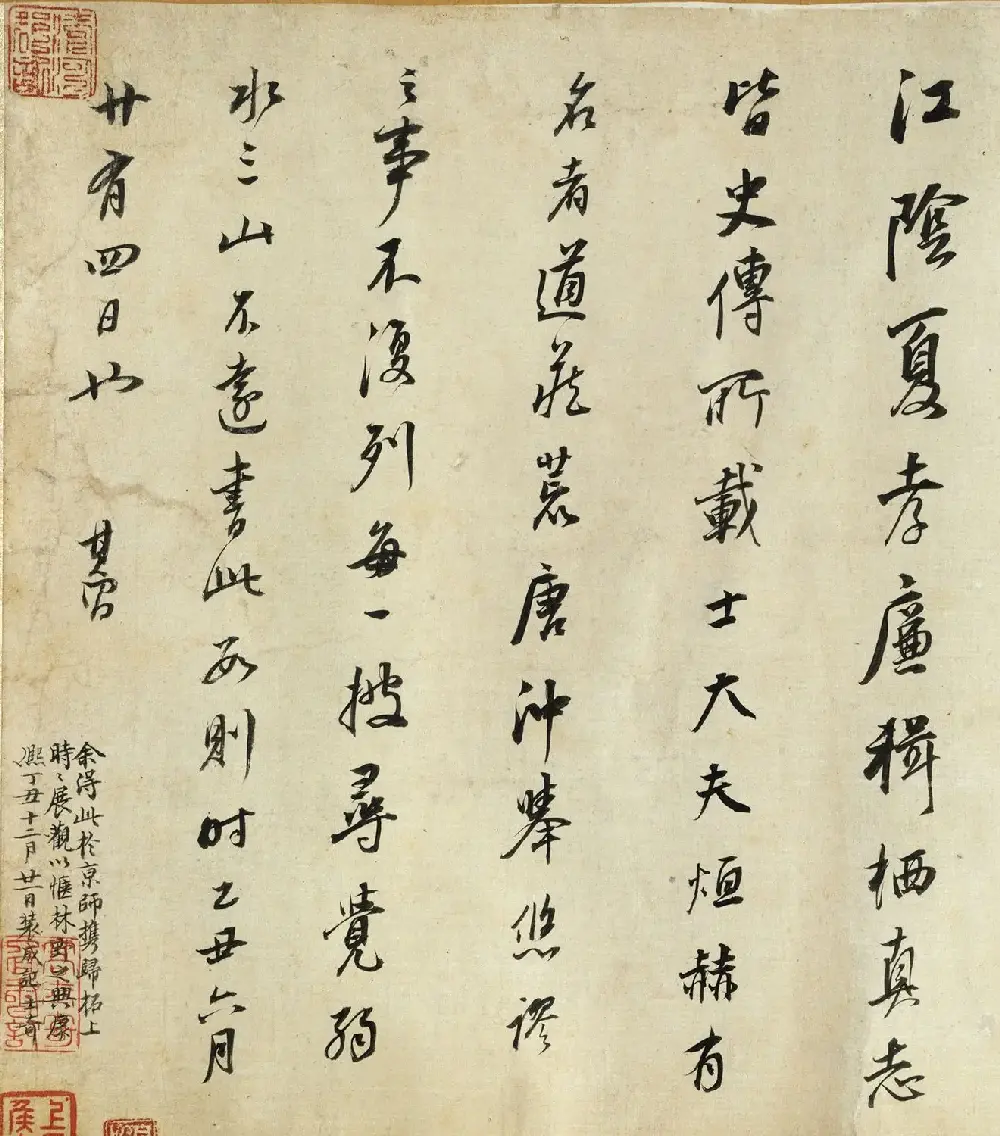 江陰夏孝廉輯栖真志
皆史傳所載士大夫烜赫有
名者道藏荒唐沖舉悠謬
之事不復列每一披尋覺弱
水三山不遠書此數則時己丑六月
廿有四日也 其昌
余得此於京師攜歸柘上
時〻展觀以愜林壑之興康
熙丁丑十二月廿一日裝成記士奇